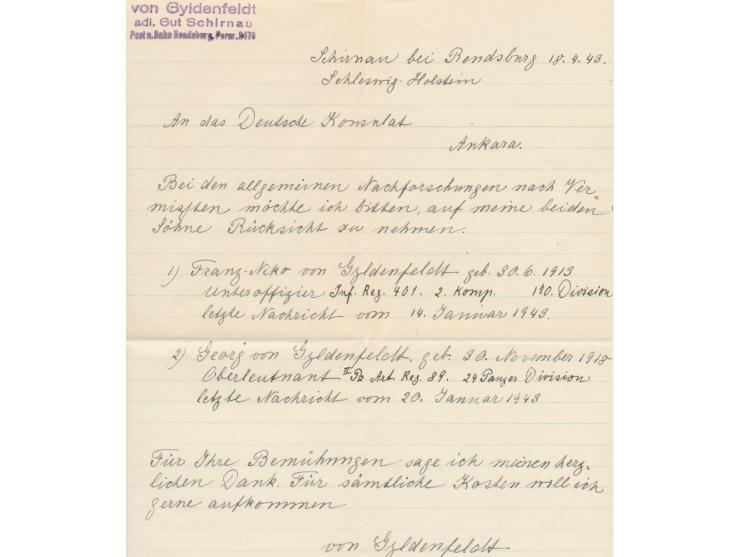 von Gyldenfeldt
adl. Gut Schirnau
Post u. Bahn Rendsburg, Fernr. 2476
Schirnau bei Rendsburg 18.4.43.
Schleswig-Holstein
An das Deutsche Konsulat
Ankara.
Bei den allgemeinen Nachforschungen nach Ver
missten möchte ich bitten, auf meine beiden
Söhne Rücksicht zu nehmen.
1) Franz-Niko von Gyldenfeldt geb. 30.6.1913
Unteroffizier Inf. Reg. 401. 2. Komp. 170. Division
letzte Nachricht vom 14. Januar 1943.
2) Georg von Gyldenfeldt. geb. 30. November 1918
Oberleutnant II Pz Art. Reg. 89. 24 Panzer Division
letzte Nachricht vom 20. Januar 1943
Für Ihre Bemühungen sage ich meinen herz-
lichen Dank. Für sämtliche Kosten will ich
gerne aufkommen
von Gyldenfeldt.